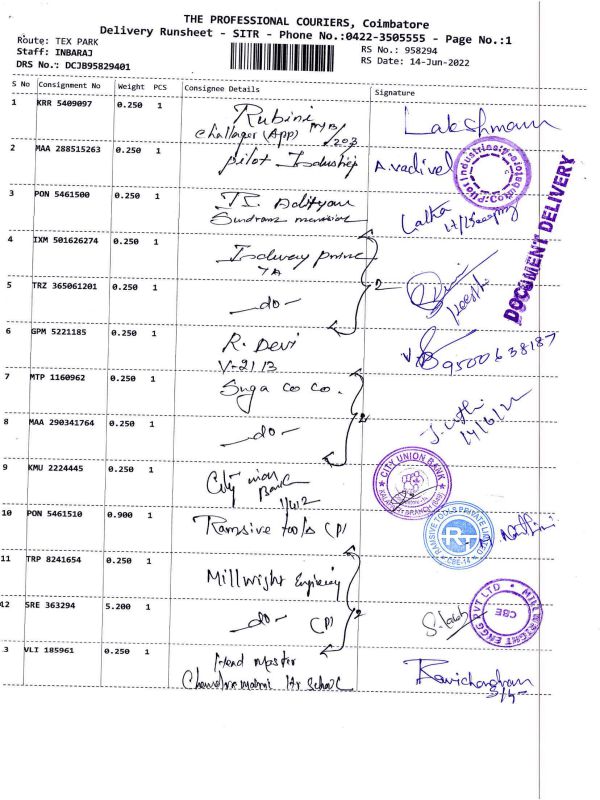 THE PROFESSIONAL COURIERS, Coimbatore
Delivery Runsheet - SITR - Phone No.:0422-3505555 - Page No.:1
Route: TEX PARK
RS No.: 958294
Staff: INBARAJ
RS Date: 14-Jun-2022
DRS No.: DCJB95829401
S No Consignment No Weight PCS Consignee Details Signature
1 KRR 5409097 0.250 1 Rubini
challager (App) 203
Lakshmann
2 MAA 288515263 0.250 1 pilot Industries A.vadivel
3 PON 5461500 0.250 1 Adityan
Latha
4 IXM 501626274 0.250 1
5 TRZ 365061201 0.250 1 -do-
2
6 GPM 5221185 0.250 1 R. Devi
V-21B
9500638187
7 MTP 1160962 0.250 1 Suga co co.
8 MAA 290341764 0.250 1 -do-
2
14/6/22
9 KMU 2224445 0.250 1 City union
Bank
CITY UNION BANK
10 PON 5461510 0.900 1 Ramsive tools CPI
RAMSIVE TOOLS PRIVATE LIMITED
RT
CBE-14
11 TRP 8241654 0.250 1 Millwright
12 SRE 363294 5.200 1 -do-
2
MILLWRIGHT ENGG PVT LTD
CBE
3 VLI 185961 0.250 1 Head master
Ravichandran
DOCUMENT DELIVERY